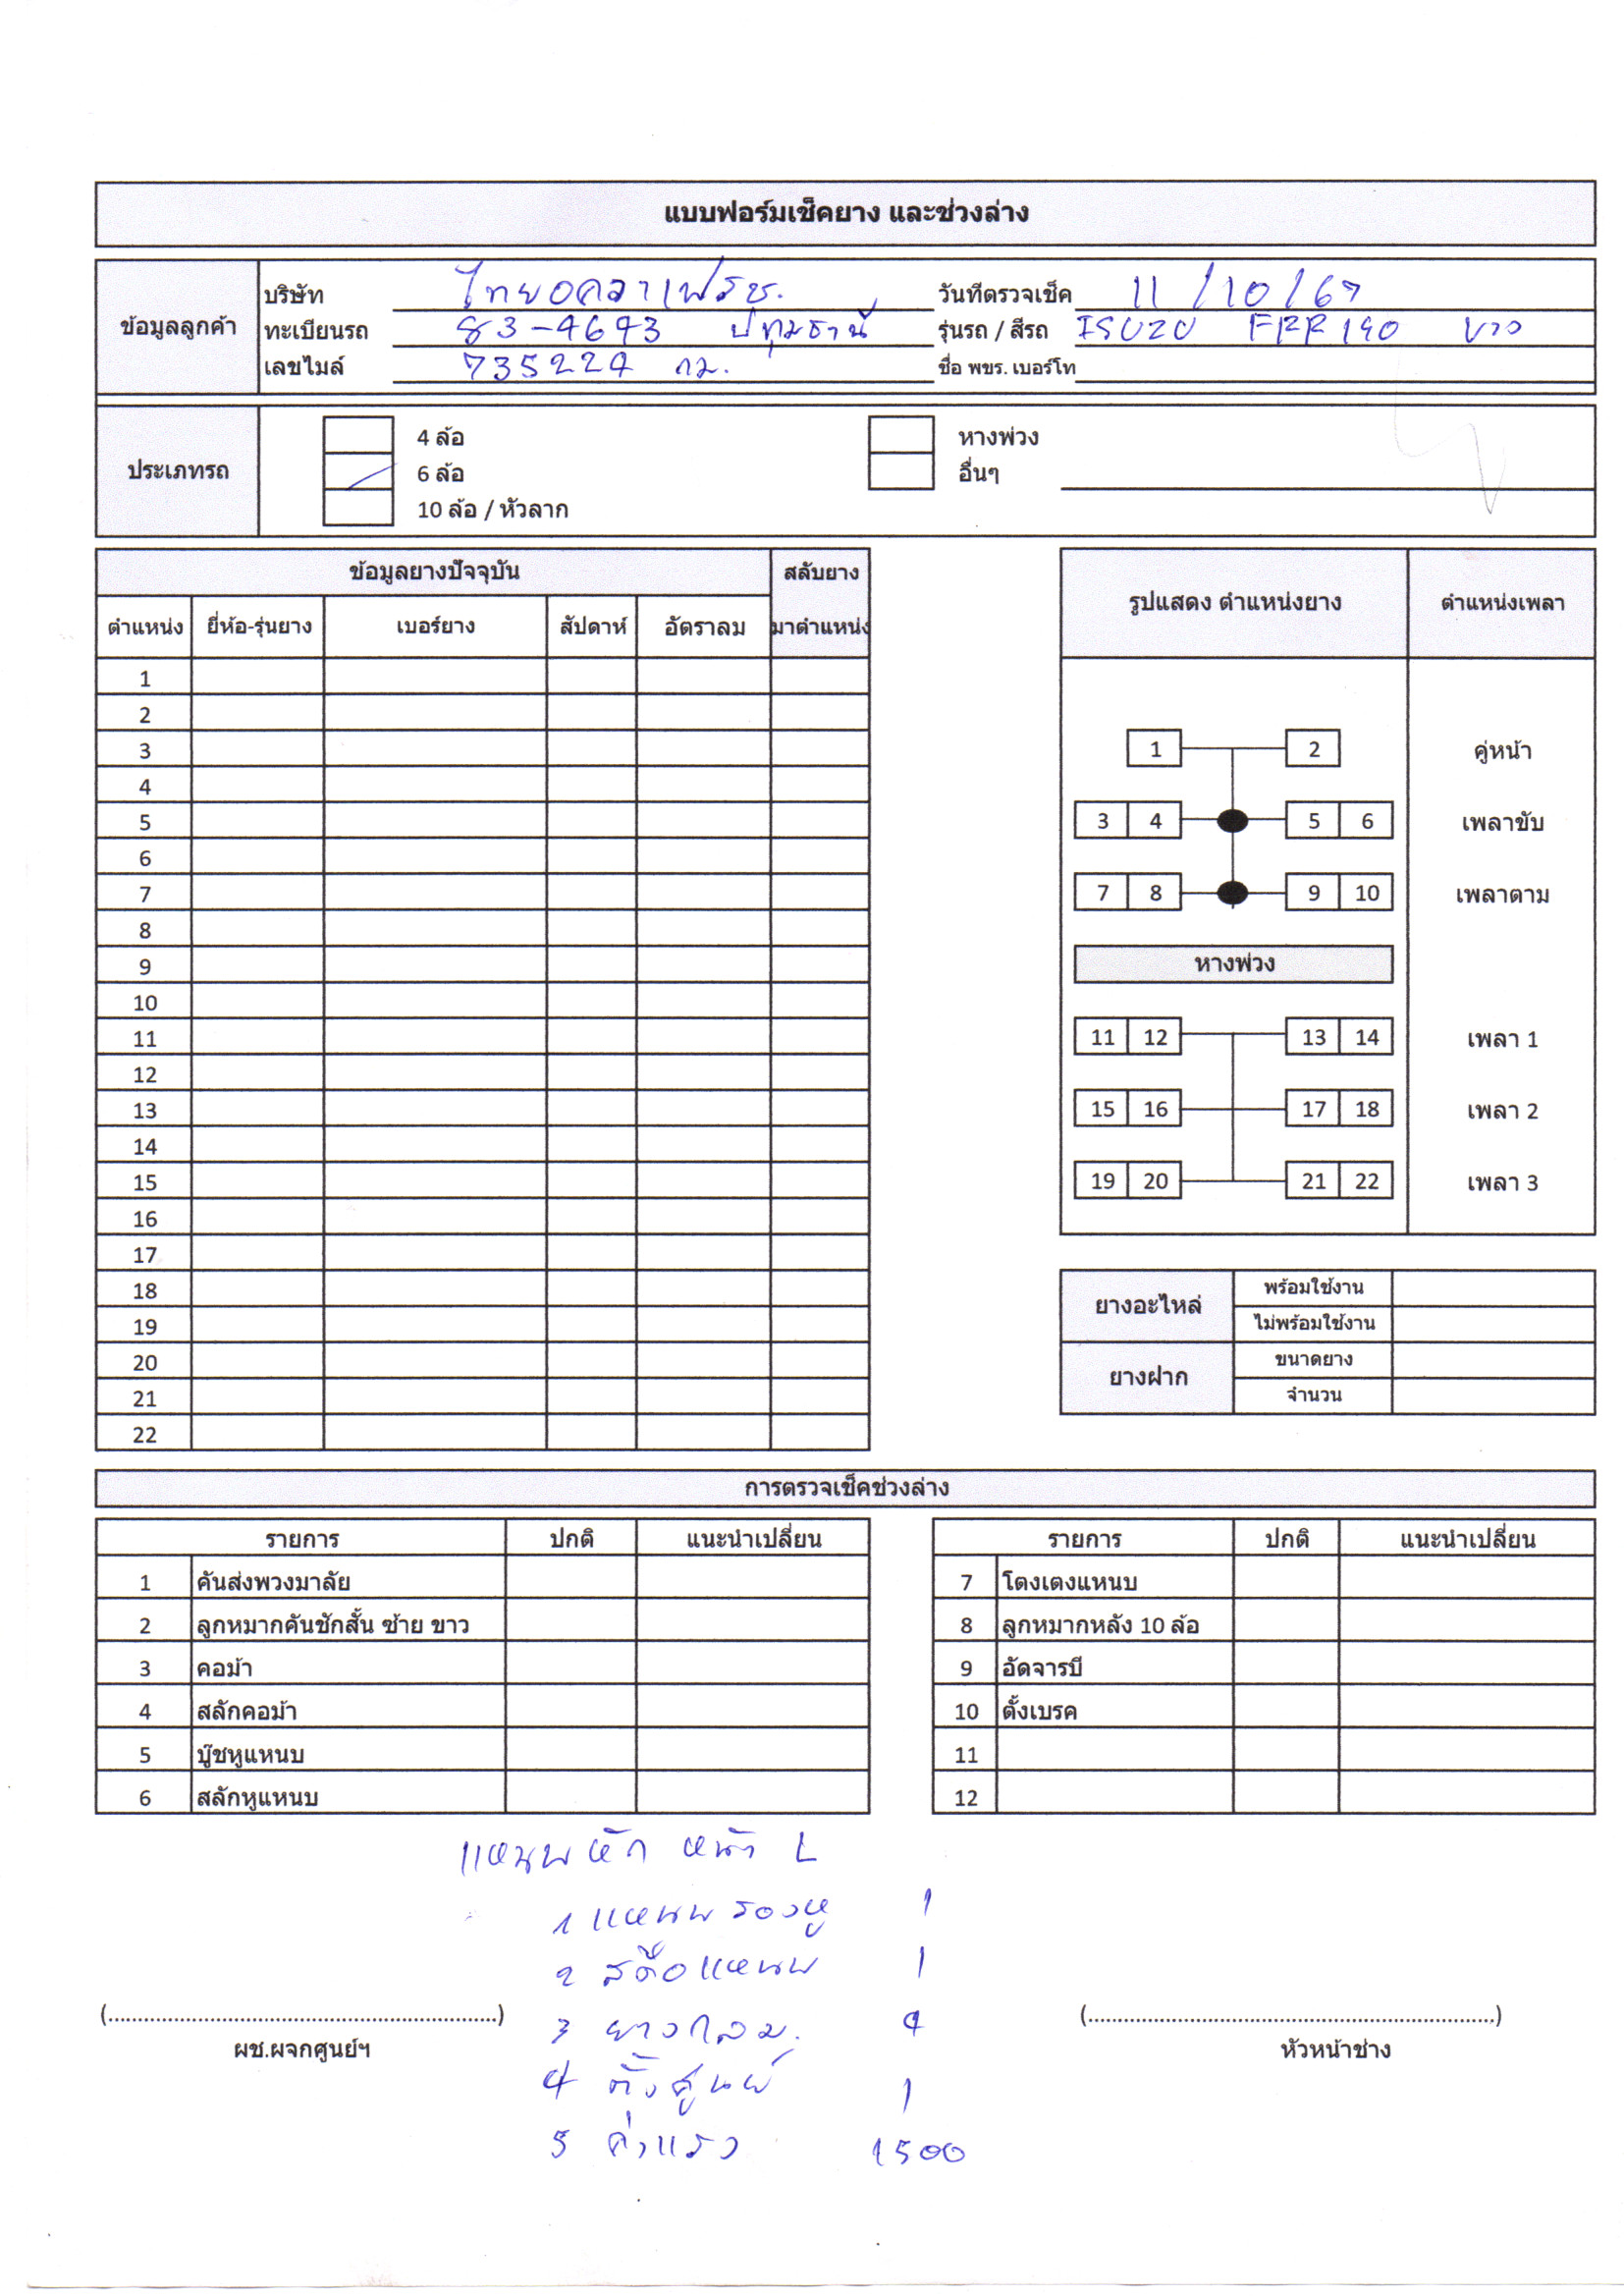 แบบฟอร์มเช็คยาง และช่วงล่าง
ข้อมูลลูกค้า
บริษัท ไทยอคลาเฟรช. วันที่ตรวจเช็ค 11/10/67
ทะเบียนรถ 83-4643 ปทุมธานี รุ่นรถ / สีรถ ISUZU FRR 190 ขาว
เลขไมล์ 735224 กม. ชื่อ พขร. เบอร์โท
ประเภทรถ
4 ล้อ หางพ่วง
6 ล้อ อื่นๆ
10 ล้อ / หัวลาก
ข้อมูลยางปัจจุบัน สลับยาง
ตำแหน่ง ยี่ห้อ-รุ่นยาง เบอร์ยาง สัปดาห์ อัตราลม มาตำแหน่ง
1
2
3
4
5
6
7
8
9
10
11
12
13
14
15
16
17
18
19
20
21
22
รูปแสดง ตำแหน่งยาง ตำแหน่งเพลา
1 2 คู่หน้า
3 4 5 6 เพลาขับ
7 8 9 10 เพลาตาม
หางพ่วง
11 12 13 14 เพลา 1
15 16 17 18 เพลา 2
19 20 21 22 เพลา 3
ยางอะไหล่ พร้อมใช้งาน
ไม่พร้อมใช้งาน
ยางฝาก ขนาดยาง
จำนวน
การตรวจเช็คช่วงล่าง
รายการ ปกติ แนะนำเปลี่ยน
1 คันส่งพวงมาลัย
2 ลูกหมากคันชักสั้น ซ้าย ขาว
3 คอม้า
4 สลักคอม้า
5 บู๊ชหูแหนบ
6 สลักหูแหนบ
รายการ ปกติ แนะนำเปลี่ยน
7 โตงเตงแหนบ
8 ลูกหมากหลัง 10 ล้อ
9 อัดจารบี
10 ตั้งเบรค
11
12
แหนบหัก หน้า L
1 แหนบรองหู 1
2 สดือแหนบ 1
3 ยางกลม. 4
4 ตั้งศูนย์ 1
5 ค่าแรง 1500
(..................................................................)
ผช.ผจกศูนย์ฯ
(......................................................................)
หัวหน้าช่าง